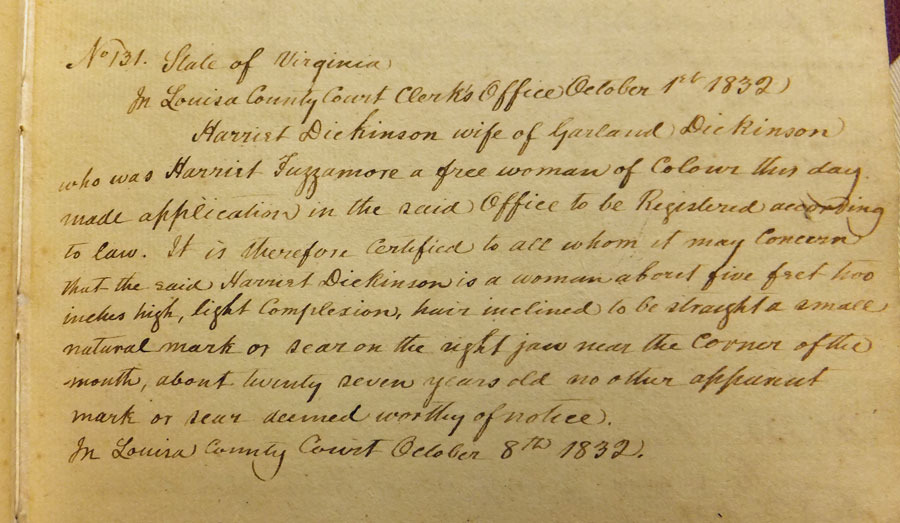 No 131. State of Virginia
In Louisa County Court Clerk's Office October 1st 1832
Harriet Dickinson wife of Garland Dickinson
who was Harriet Fuzzamore a free woman of Colour this day
made application in the said Office to be Registered according
to law. It is therefore Certified to all whom it may Concern
that the said Harriet Dickinson is a woman about five feet two
inches high, light Complexion, hair inclined to be straight a small
natural mark or scar on the right jaw near the Corner of the
mouth, about twenty seven years old no other apparent
mark or scar deemed worthy of notice.
In Louisa County Court October 8th 1832.